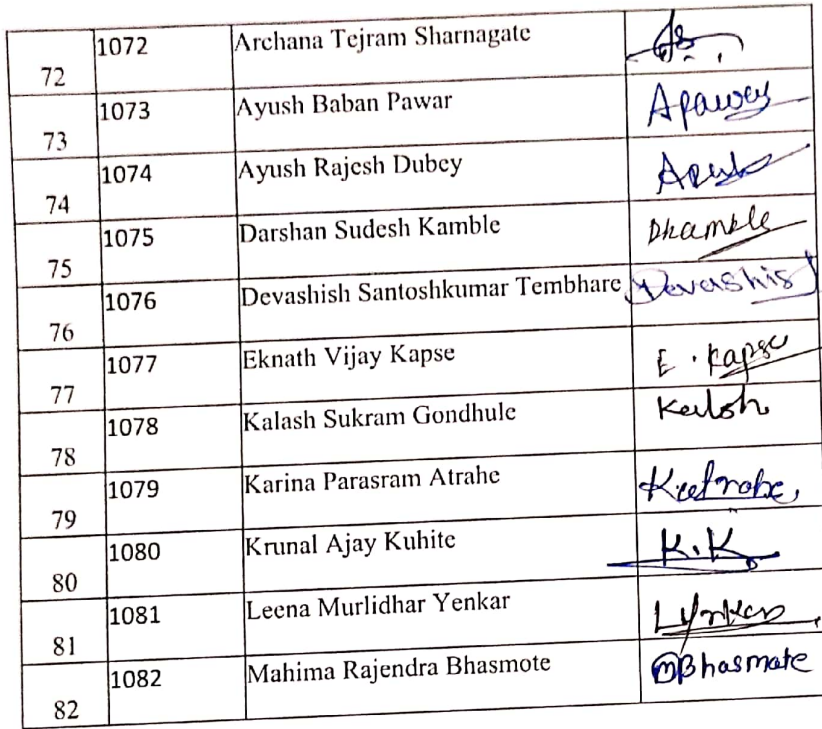 72 1072 Archana Tejram Sharnagate
73 1073 Ayush Baban Pawar Apaway
74 1074 Ayush Rajesh Dubey
75 1075 Darshan Sudesh Kamble Dkamble
76 1076 Devashish Santoshkumar Tembhare Devashis
77 1077 Eknath Vijay Kapse E. Kapse
78 1078 Kalash Sukram Gondhule
79 1079 Karina Parasram Atrahe
80 1080 Krunal Ajay Kuhite K.K
81 1081 Leena Murlidhar Yenkar
82 1082 Mahima Rajendra Bhasmote MBhasmate